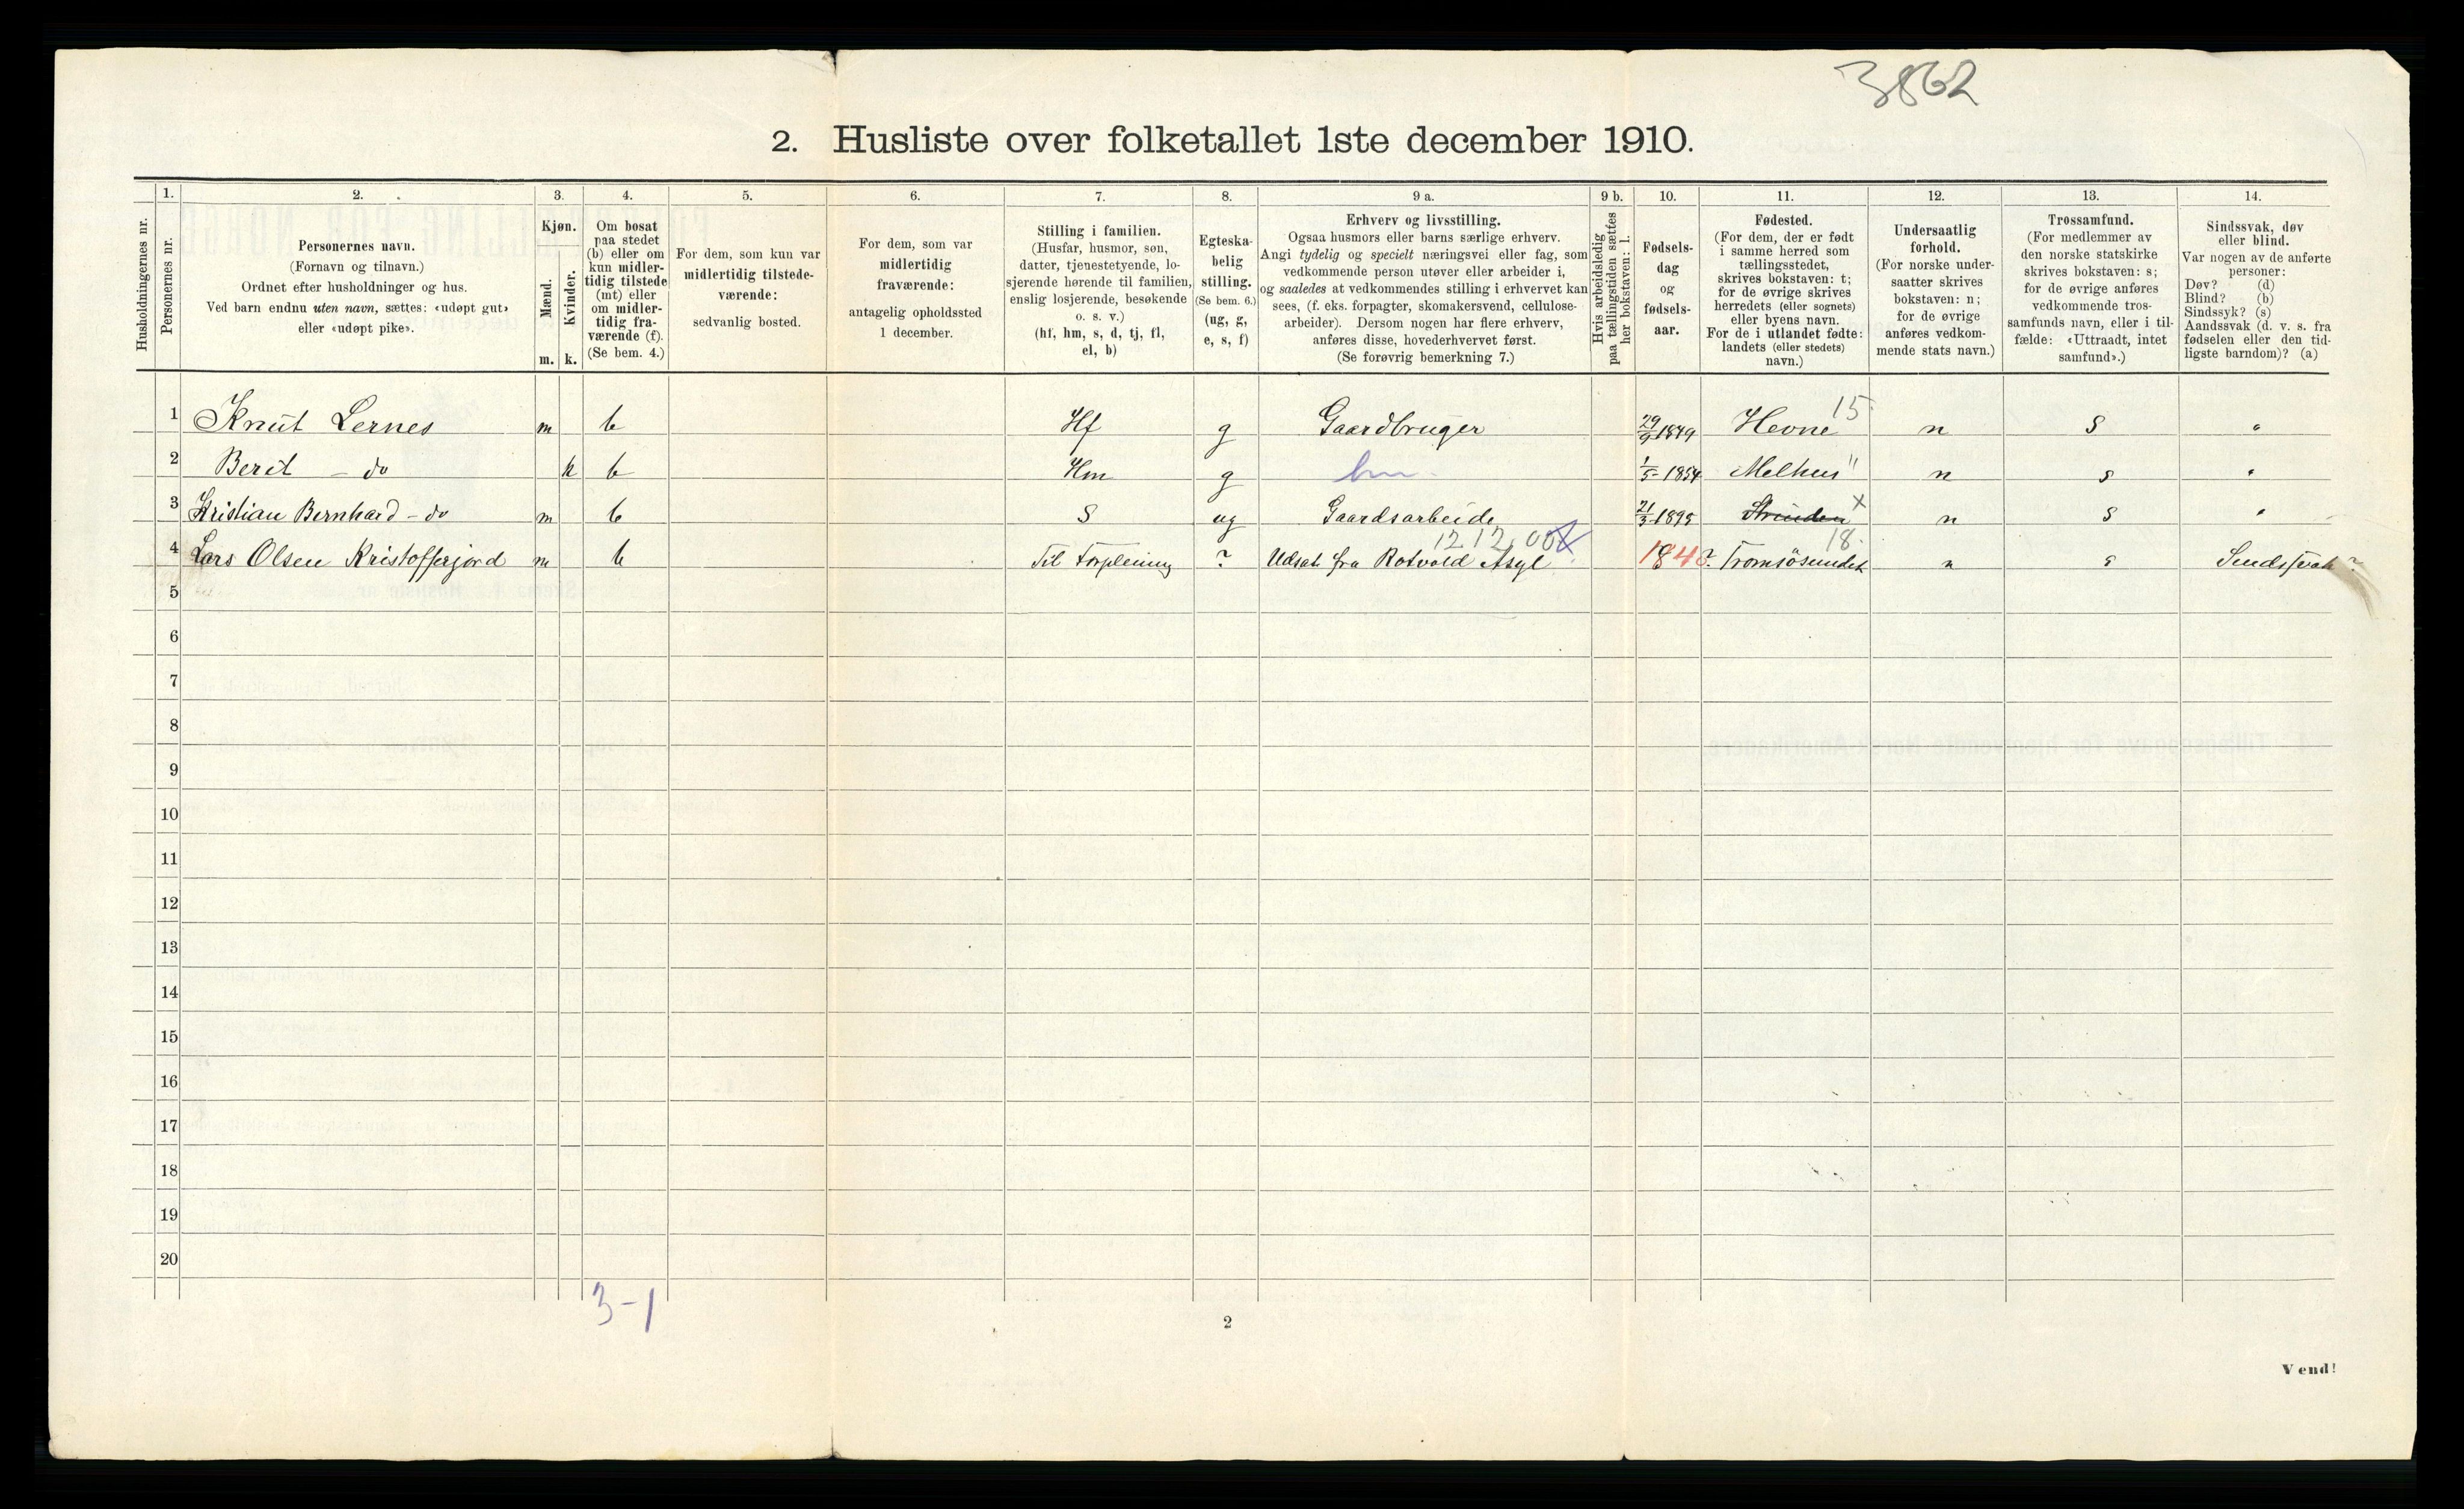 3862
2. Husliste over folketallet 1ste december 1910.
Husholdningernes nr.
1.
Personernes nr.
2.
Personernes navn.
(Fornavn og tilnavn.)
Ordnet efter husholdninger og hus.
Ved barn endnu uten navn, sættes: «udøpt gut»
eller «udøpt pike».
3.
Kjøn.
Mænd.
Kvinder.
m. k.
4.
Om bosat
paa stedet
(b) eller om
kun midler-
tidig tilstede
(mt) eller
om midler-
tidig fra-
værende (f).
(Se bem. 4.)
5.
For dem, som kun var
midlertidig tilstede-
værende:
sedvanlig bosted.
6.
For dem, som var
midlertidig
fraværende:
antagelig opholdssted
1 december.
7.
Stilling i familien.
(Husfar, husmor, søn,
datter, tjenestetyende, lo-
sjerende hørende til familien,
enslig losjerende, besøkende
o. s. v.)
(hf, hm, s, d, tj, fl,
el, b)
8.
Egteska-
belig
stilling.
(Se bem. 6.)
(ug, g,
e, s, f)
9 a.
Erhverv og livsstilling.
Ogsaa husmors eller barns særlige erhverv.
Angi tydelig og specielt næringsvei eller fag, som
vedkommende person utøver eller arbeider i,
og saaledes at vedkommendes stilling i erhvervet kan
sees, (f. eks. forpagter, skomakersvend, cellulose-
arbeider). Dersom nogen har flere erhverv,
anføres disse, hovederhvervet først.
(Se forøvrig bemerkning 7.)
9 b.
Hvis arbeidsledig
paa tællingstiden sættes
her bokstaven: l.
10.
Fødsels-
dag
og
fødsels-
aar.
11.
Fødested.
(For dem, der er født
i samme herred som
tællingsstedet,
skrives bokstaven: t;
for de øvrige skrives
herredets (eller sognets)
eller byens navn.
For de i utlandet fødte:
landets (eller stedets)
navn.)
12.
Undersaatlig
forhold.
(For norske under-
saatter skrives
bokstaven: n;
for de øvrige
anføres vedkom-
mende stats navn.)
13.
Trossamfund.
(For medlemmer av
den norske statskirke
skrives bokstaven: s;
for de øvrige anføres
vedkommende tros-
samfunds navn, eller i til-
fælde: «Uttraadt, intet
samfund».)
14.
Sindssvak, døv
eller blind.
Var nogen av de anførte
personer:
Døv? (d)
Blind? (b)
Sindssyk? (s)
Aandssvak (d. v. s. fra
fødselen eller den tid-
ligste barndom)? (a)
1 Knut Lernes m b Hf g Gaardbruger 29/9 1849 Hevne 15 n S "
2 Berit - do k b Hm g hm 1/5 - 1854 Melhus " n s "
3 Kristian Bernhard - do m b S ug Gaardsarbeide 21/3 1895 Strinden x n S "
1212.00 18
4 Lars Olsen Kristofferjord m b Til Forplening ? Udsat fra Rotvold Asyl 184? Tromsösundet n s Sindssvak ?
5
6
7
8
9
10
11
12
13
14
15
16
17
18
19
20
3-1
2
Vend!